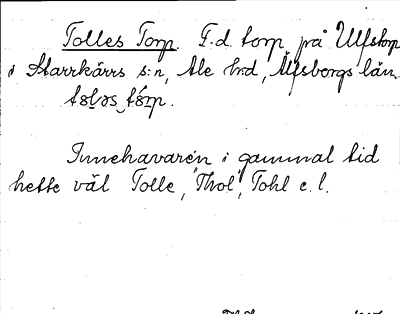 Tolles Torp. F.d. torp på Ulfstorp
i Starrkärrs s:n, Ale h:d, Älfsborgs län.
Innehavaren i gammal tid
hette väl Tolle, "Thol", Tohl e.l.